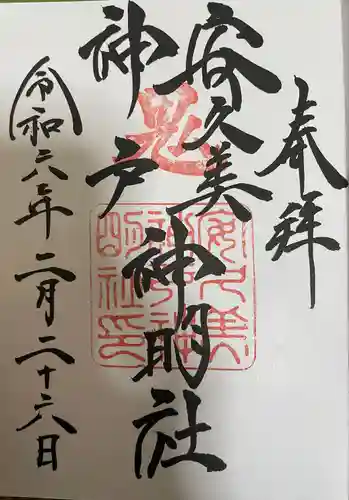 奉拝
安久美
神戸
神明社
令和六年二月二十六日